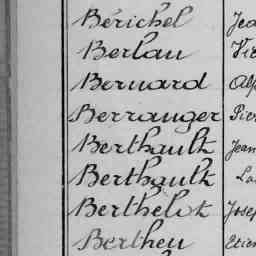 Bérichel Jea
Berlau Vic
Bernard Alp
Berranger Pier
Berthault Jean
Berthault Lo
Berthelot Josep
Bertheu Etien